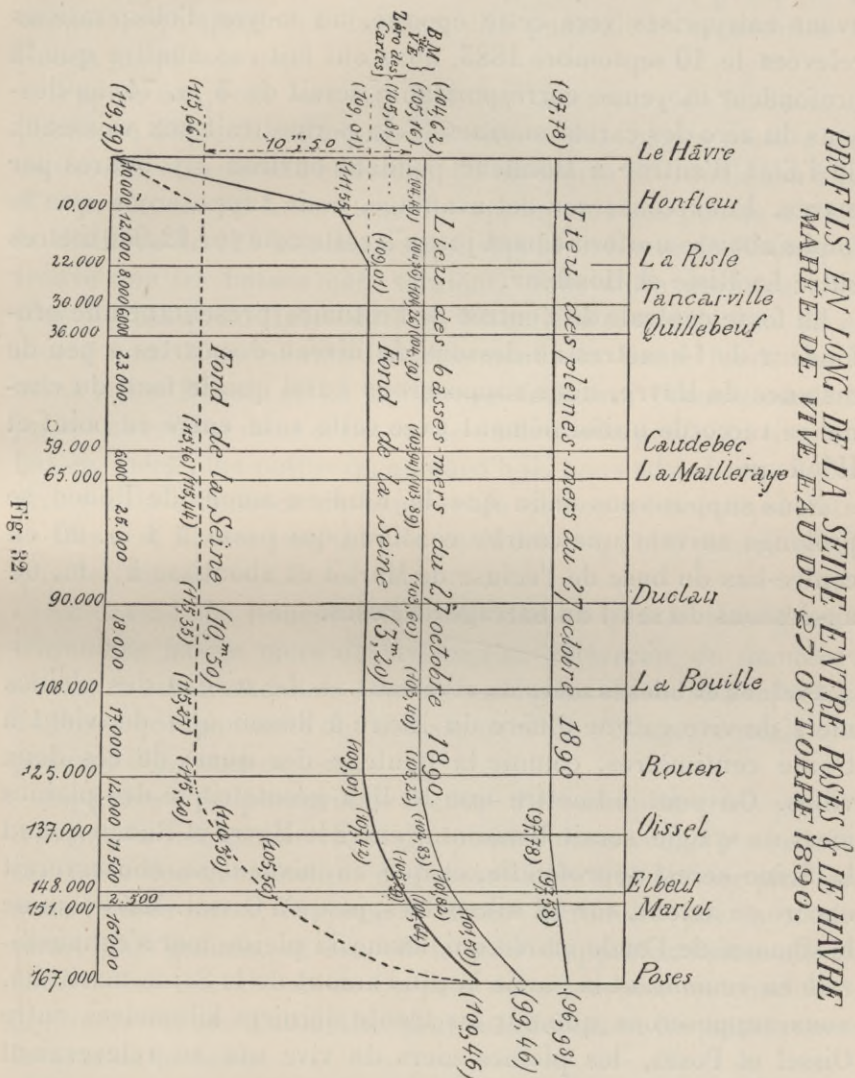 PROFILS EN LONG DE LA SEINE ENTRE POSES & LE HAVRE
MARÉE DE VIVE EAU DU 27 OCTOBRE 1890
Le Hâvre
Honfleur
La Risle
Tancarville
Quillebeuf
Caudebec
La Mailleraye
Duclau
La Bouille
Rouen
Oissel
Elbeuf
Martot
Poses
(97,78)
Lieu des pleines-mers du 27 octobre 1890
(97,78)
(97,58)
(96,98)
B.M.
V.E.
(104,62)
(105,16)
Zéro des Cartes
(105,81)
(109,01)
(104,19)
(103,89)
(103,60)
(103,40)
(103,22)
(101,82)
(99,46)
Lieu des basses-mers du 27 octobre 1890
(111,55)
(109,01)
Fond de la Seine (3,m20)
(109,01)
(107,42)
(101,50)
(100,46)
(115,66)
10m,50
(119,79)
(115,46)
(115,44)
Fond de la Seine (10,m50)
(115,35)
(115,27)
(115,20)
(110,30)
(105,50)
10.000
12.000
8000
6000
23.000
6000
25.000
18.000
17.000
12.000
11.500
2.500
16.000
10.000
22.000
30.000
36.000
59.000
65.000
90.000
108.000
125.000
137.000
148.000
151.000
167.000
Fig. 32.